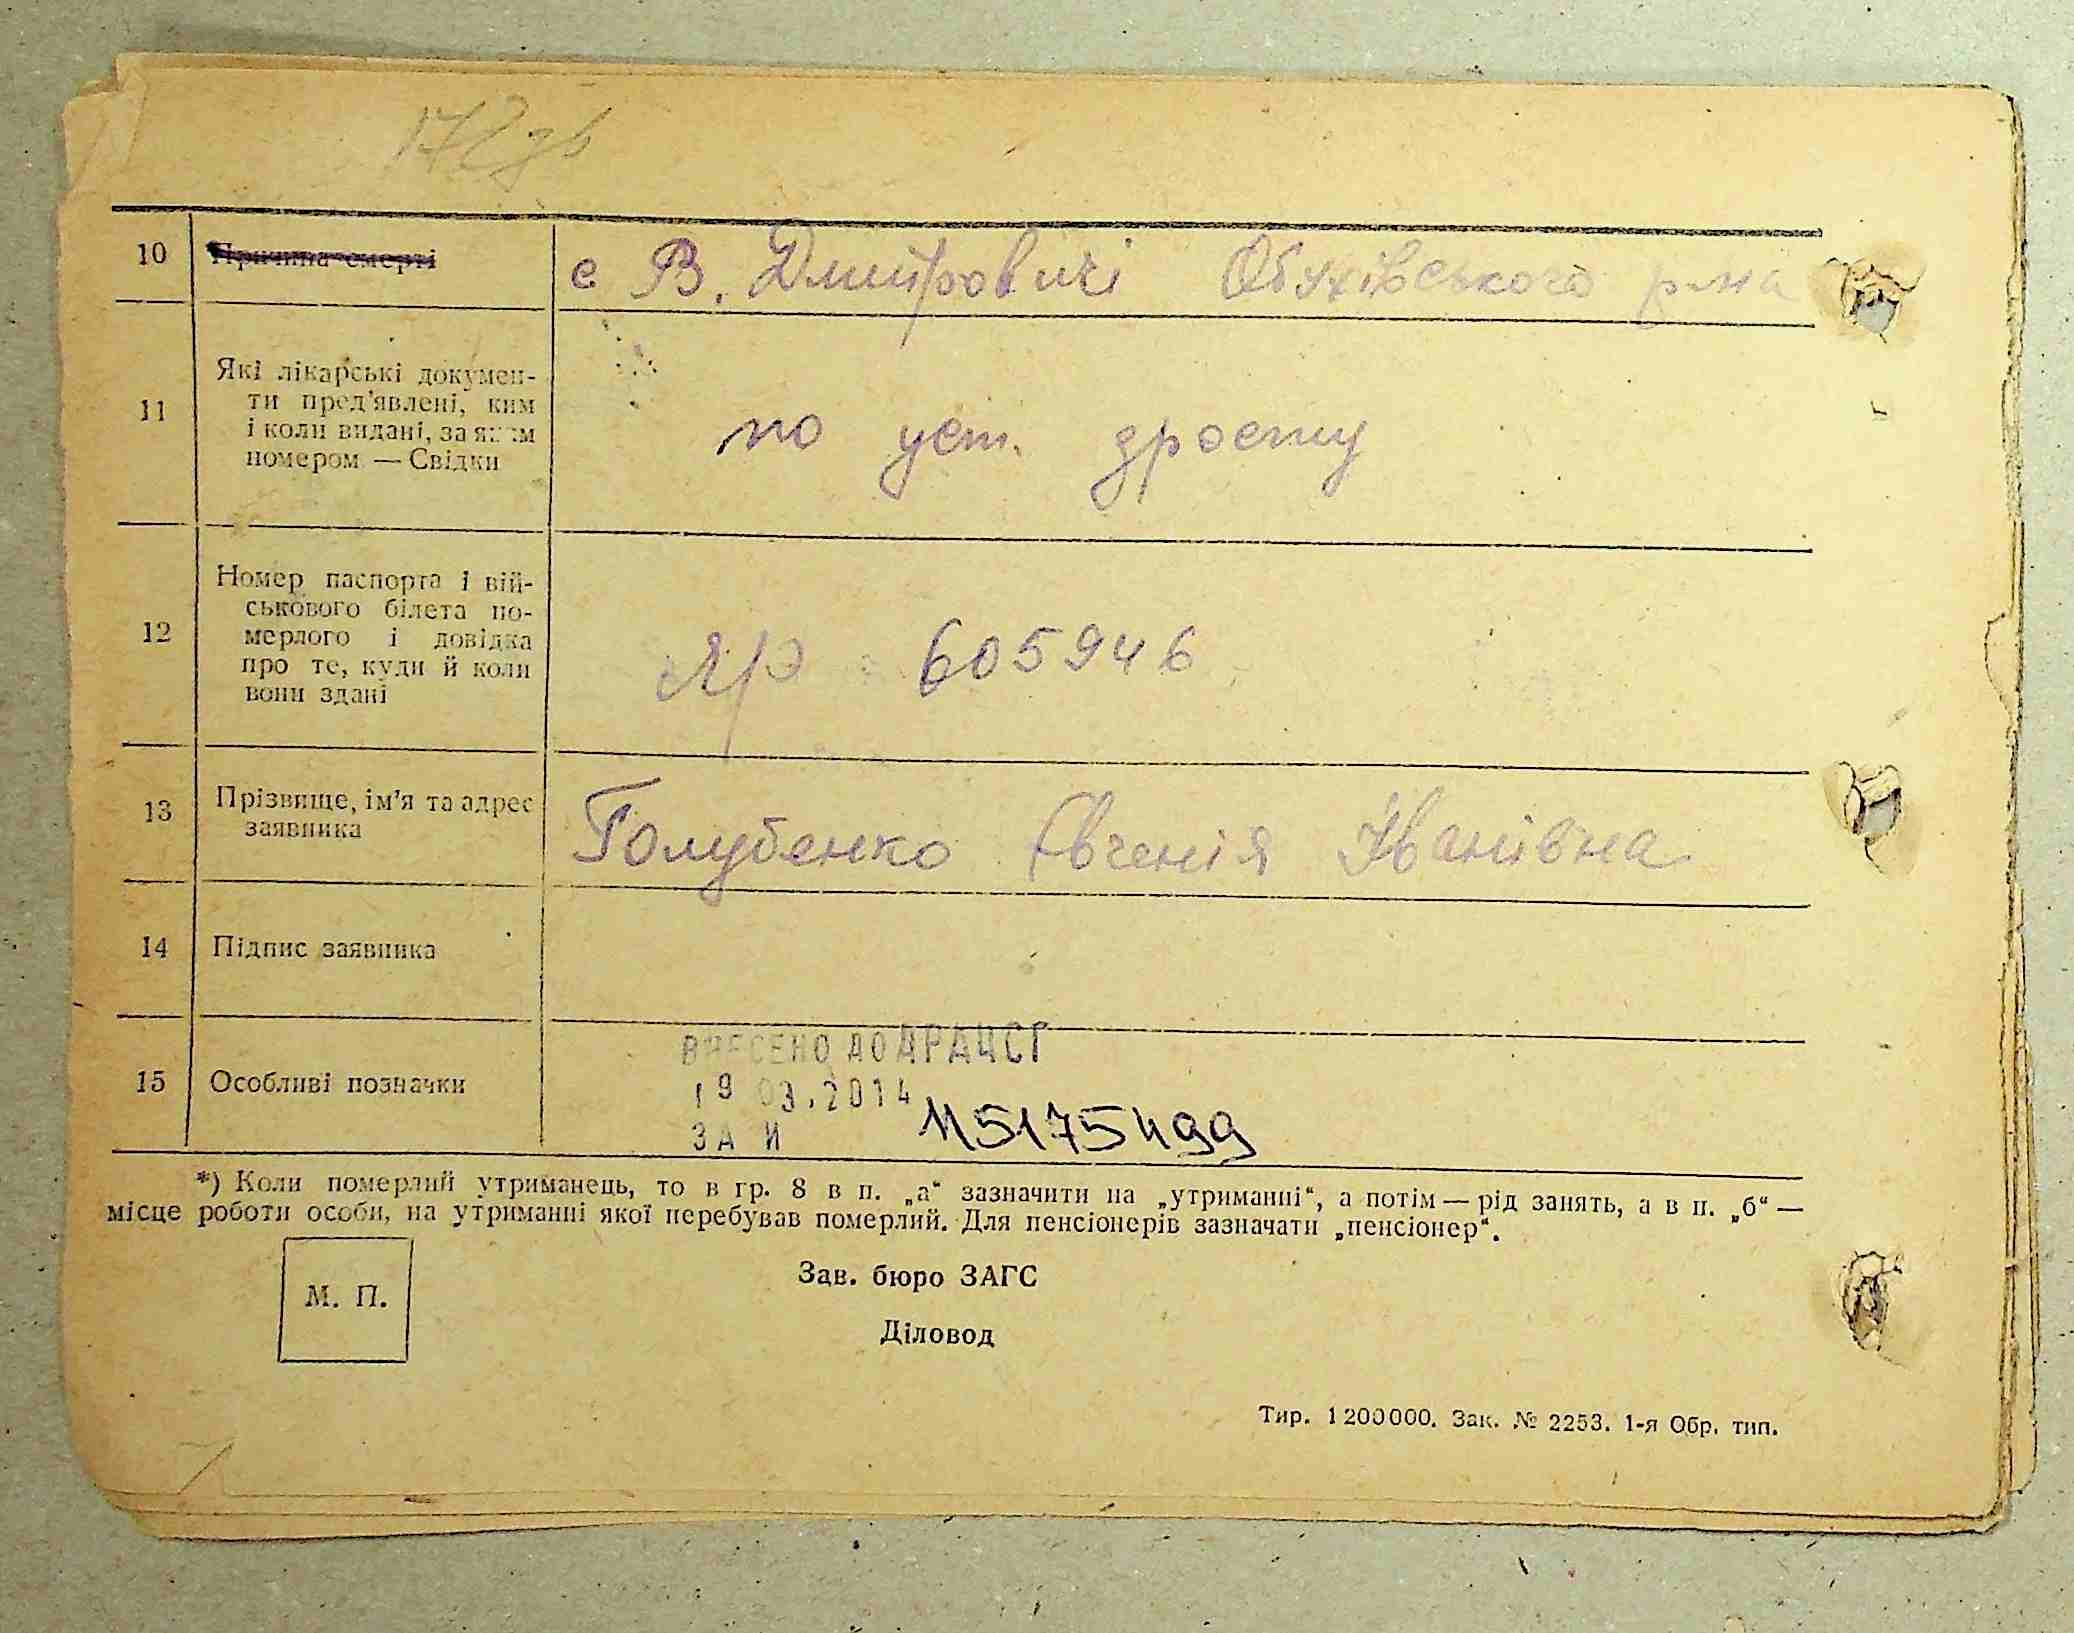 10 Причина смерті с В. Дмитровичі Обухівського р-на
11 Які лікарські докумен-
ти пред'явлені, ким
і коли видані, за яким
номером — Свідки
по уст. дроєпу
12 Номер паспорта і вій-
ськового білета по-
мерлого і довідка
про те, куди й коли
вони здані
ЯР 605946
13 Прізвище, ім'я та адрес
заявника
Голубенко Євгенія Іванівна
14 Підпис заявника
15 Особливі позначки
ВНЕСЕНО ДО ДРАЦСГ
19 03.2014
ЗА И 115175499
*) Коли померлий утриманець, то в гр. 8 в п. „а“ зазначити на „утриманні“, а потім — рід занять, а в п. „б“ —
місце роботи особи, на утриманні якої перебував померлий. Для пенсіонерів зазначати „пенсіонер“.
М. П.
Зав. бюро ЗАГС
Діловод
Тир. 1200000. Зак. № 2253. 1-я Обр. тип.